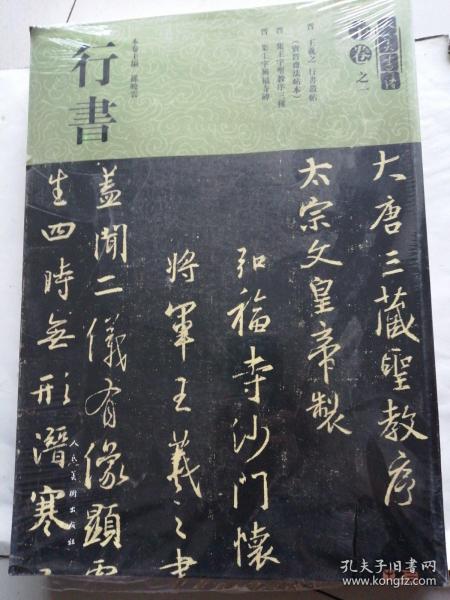 卷之一
晋 王羲之 行書叢帖
（寶晋齋法帖本）
晋 集王字聖教序三種
晋 集王字興福寺碑
本卷主編 孫曉雲
行書
大唐三藏聖教序
太宗文皇帝製
弘福寺沙門懷
將軍王羲之書
蓋聞二儀有像顯
生四時無形潛寒
人民美術出版社
孔夫子旧书网
www.kongfz.com